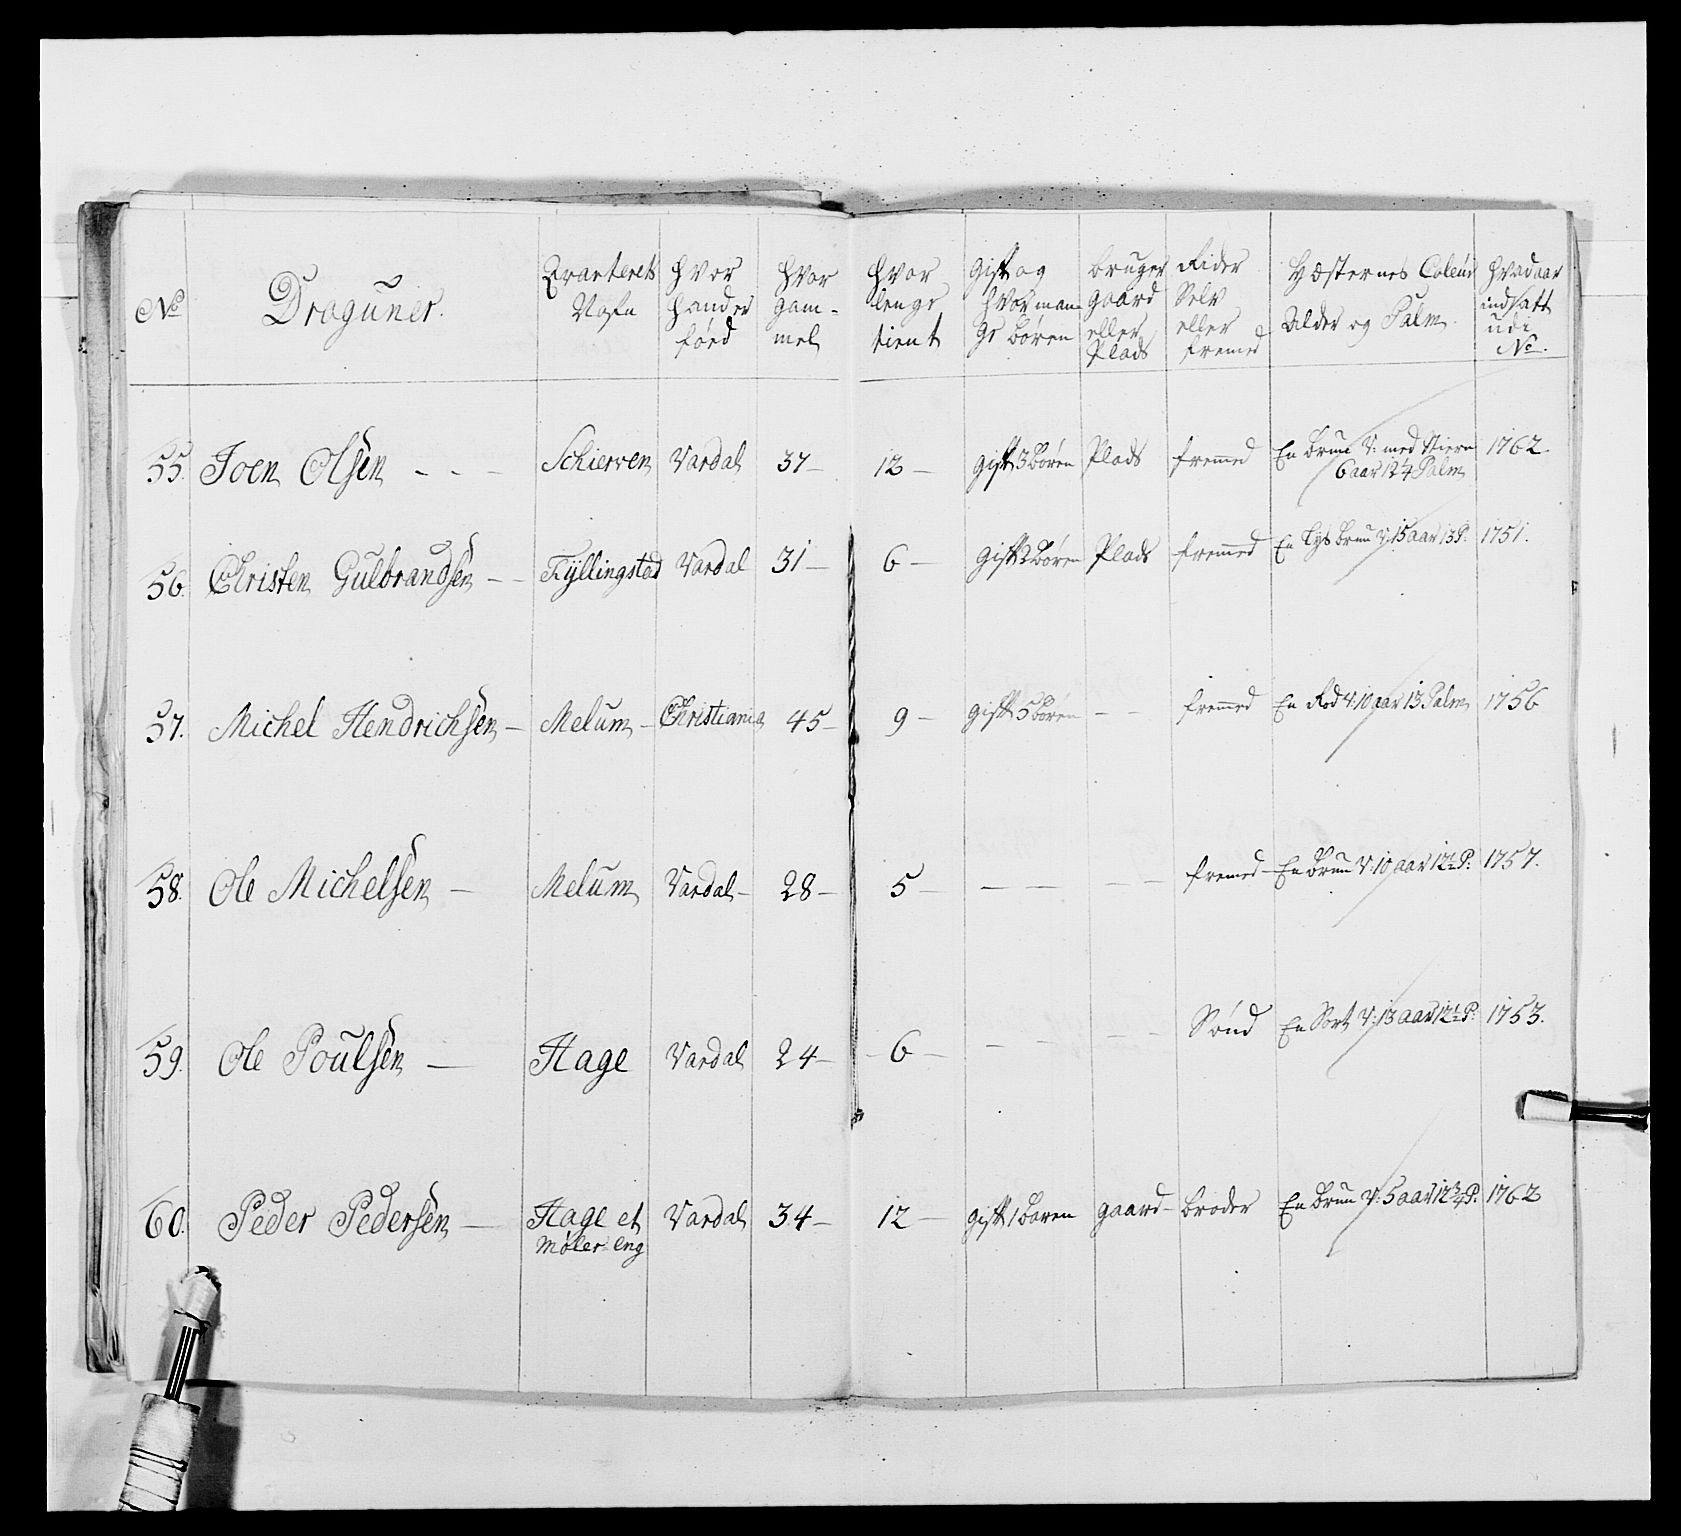 No Draguner. Qvarterets Nafn hvor hand er föed hvor gam-mel hvor lenge tient Gift og hvor mange børen bruger gaard eller Plads Rider Selv eller fremed Hæsternes Coleur Alder og Palm. hvad aar indsatt udi No.
55. Joen Olsen - - - Schierven Vardal 37- 12- gift 3 børen Plads fremmed En brun V: med Stiern 1762.
6 aar 12¼ Palm
56. Christen Gulbrandsen - - Fyllingstad Vardal 31- 6- gift 2 børen Plads fremmed En lys brun V: 15 aar 13 P. 1751.
57. Michel Hendrichsen - Melum - Christiania 45- 9- gift 5 børen - - fremmed En Rød V: 10 aar 13 Palm 1756
58. Ole Michelsen - Melum Vardal- 28- 5- - - - - fremed- En brun V: 10 aar 12½ P. 1757.
59. Ole Poulsen - Hage Vardal 24- -6- - - - - Sønd En Sort V: 13 aar 12½ P. 1753.
60. Peder Pedersen - Hage et Vardal 34- 12- gift 1 baren gaard- broder En brun V: 5 aar 12¾ P. 1762
Møler-Eng